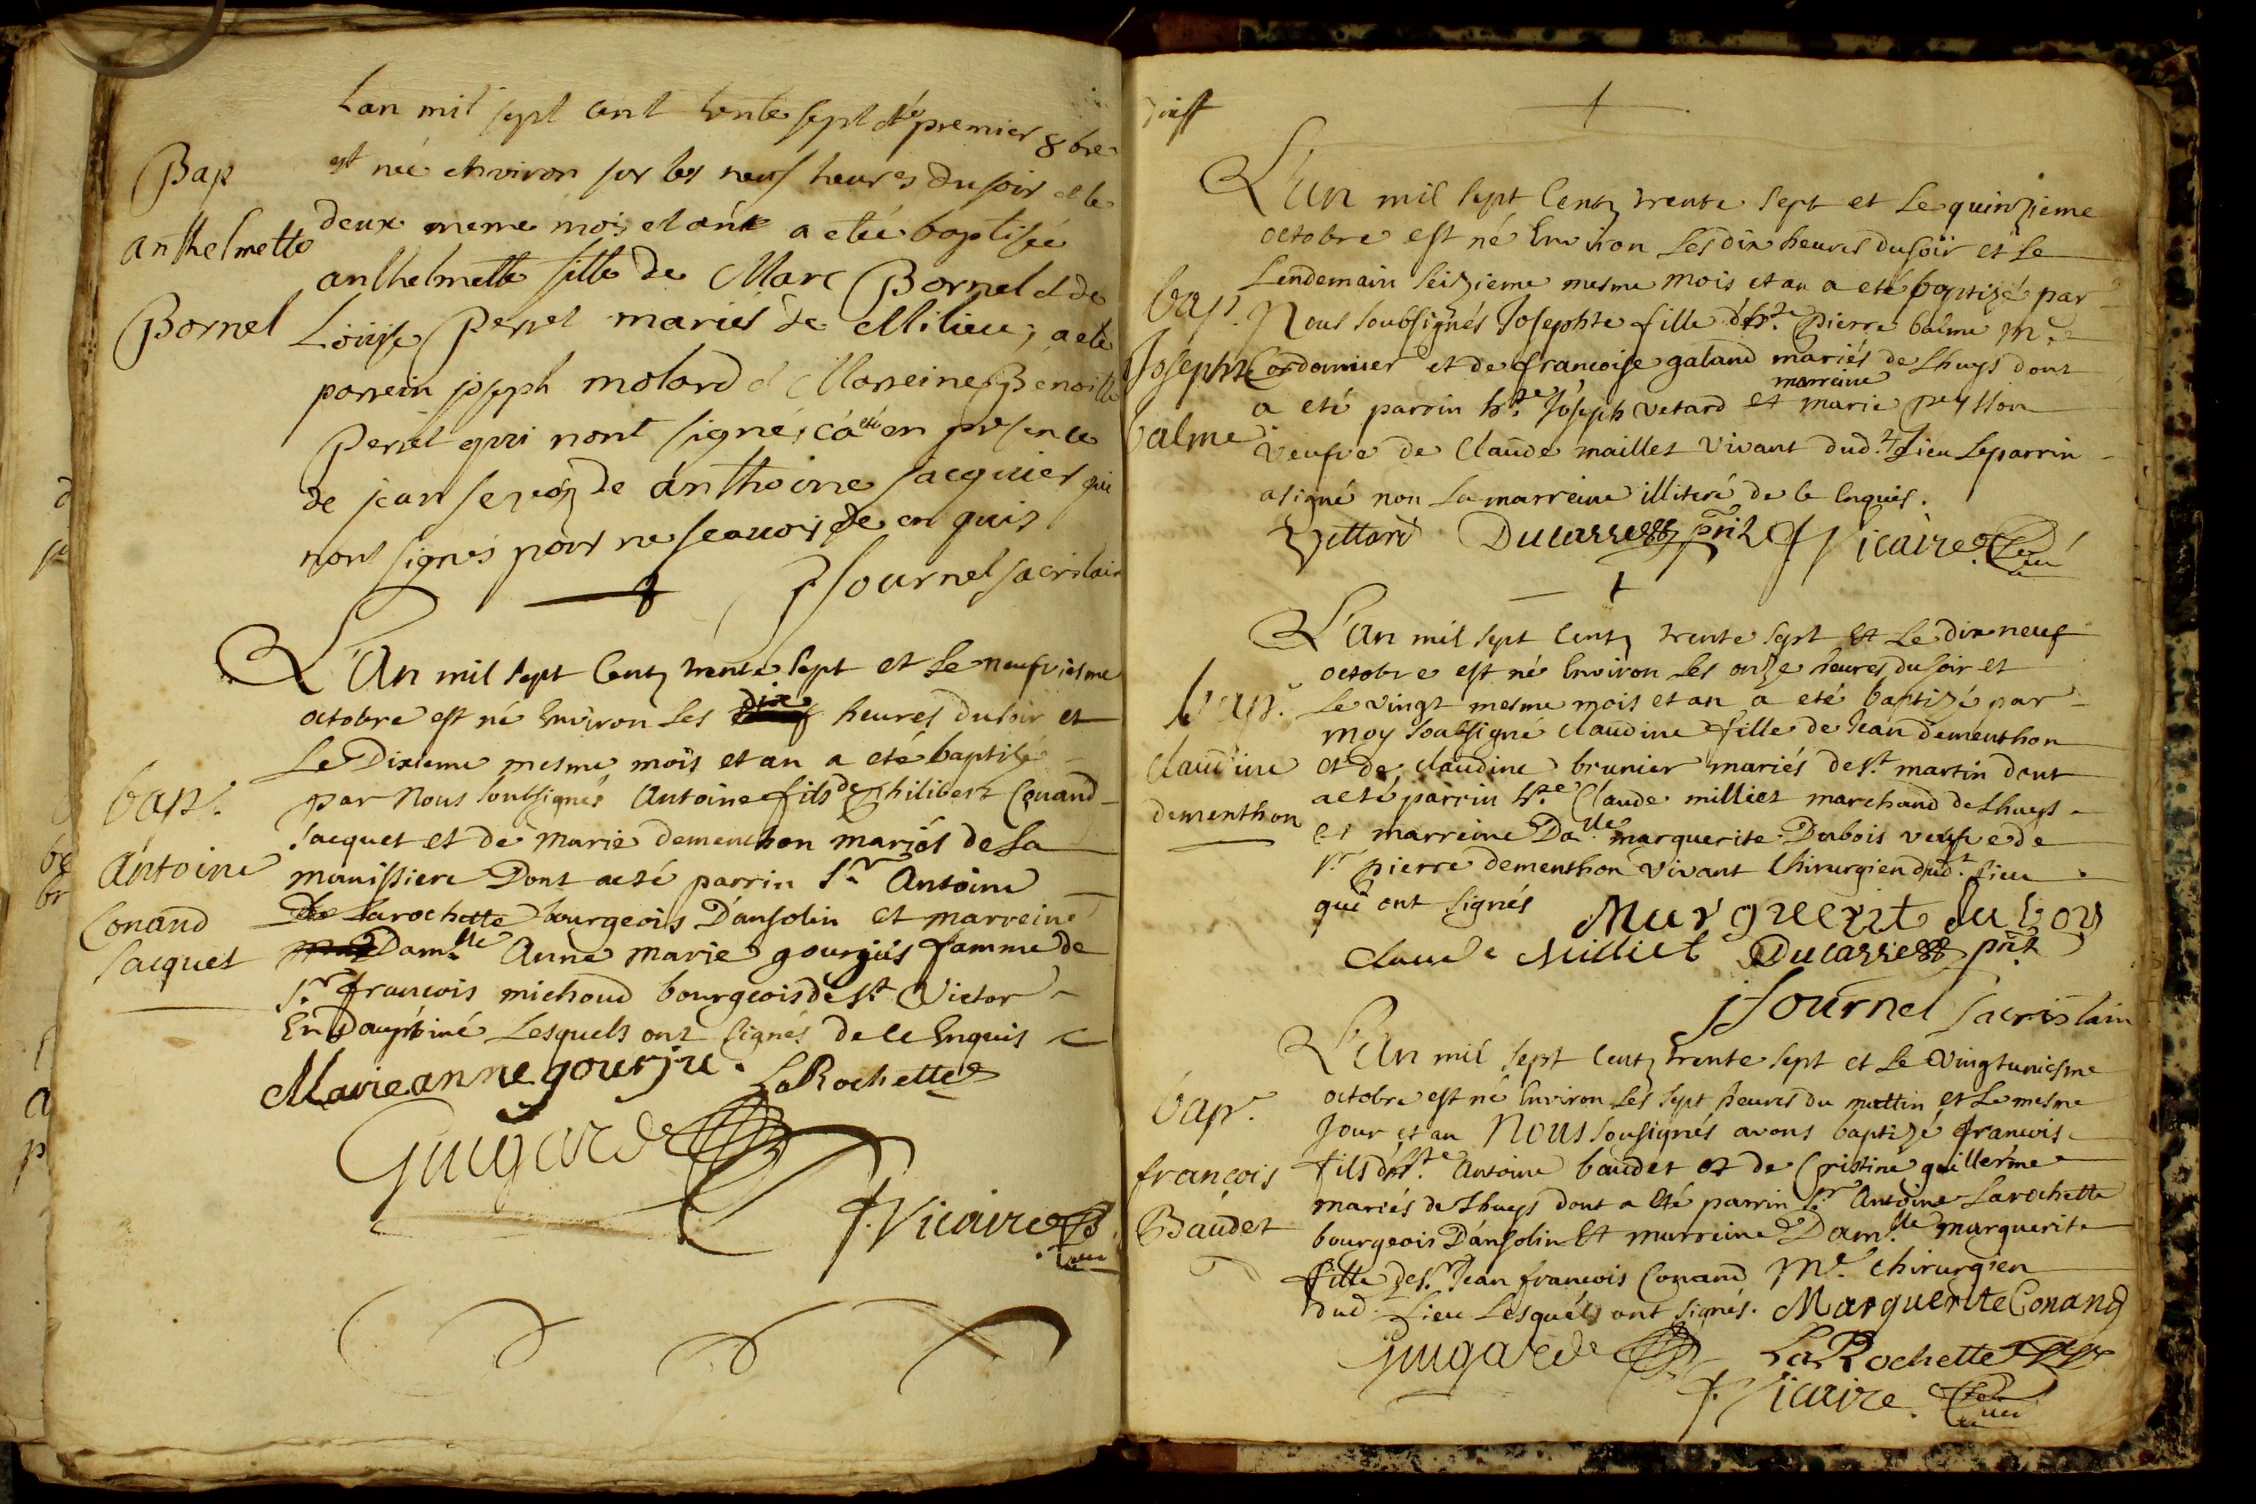 Lan mil sept cent trente sept et le premier 8bre
est née environ sur les neuf heures du soir et le
deux meme mois et an a etée baptisée
anthelmette fille de Marc Bornel et de
Louise Perret mariés de Milieu, a ete
parrein joseph molard et Marreine Benoitte
Perret qui nont signés, ca eté en presence
de jean et de anthoine jacquier qui
nont signés pour ne scavoir de ce enquis
J Journel sacristain
Bap
anthelmette
Bornel
L'An mil sept Centz trente sept et le neufviesme
octobre est né Environ les dix heures du soir et
Le Dixieme mesme mois et an a eté baptizé
par Nous soubsignés Antoine fils de Philibert Conand
Jacquet et de Marie dementhon mariés de La
manissiere Dont a eté parrin Sr Antoine
Larochette bourgeois D'ansolin et marreine
Dam.lle Anne marie gourjus famme de
Sr francois michoud bourgeois de St Victor
En Dauphiné Lesquels ont signés de ce Enquis
bap.
Antoine
Conand
Jacquet
Marie anne gourju. LaRochette
Guigarde
f. Vicaire
L'an mil sept Centz trente sept et Le quinzieme
octobre est né Environ Les dix heures du soir et Le
Lendemain seizieme mesme mois et an a eté baptizé par
Nous soubsignés Josephte fille d'hte pierre balme me
Cordonnier et de francoise galand mariés de Lhuys dont
a eté parrin hte Joseph vetard et marreine marie peysson
veufve de Claude maillet vivant dud.t Lieu Le parrin
a signé non La marreine illiteré de ce Enquis.
bap.
Josephte
balme
Vettard Ducasse prtz f. Vicaire Curé
L'an mil sept Centz trente sept et Le dix neuf
octobre est né Environ Les onze heures du soir et
Le vingt mesme mois et an a eté baptizé par
moy soubsigné Claudine fille de Jean dementhon
et de claudine brunier mariés de St martin dont
a eté parrin hte Claude milliet marchand de Lhuys
et marreine Dalle marguerite Dubois veufve de
Sr pierre dementhon vivant Chirurgien dud.t Lieu
qui ont signés
bap.
Claudine
dementhon
Murguerite du boy
claude Milliet Ducasse prtz
J Journel sacristain
L'An mil sept Centz trente sept et Le vingtuniesme
octobre est né Environ Les sept heures du mattin et Le mesme
Jour et an Nous sousignés avons baptizé francois
fils d'hte Antoine baudet et de Cristine guillerme
mariés de Lhuys dont a eté parrin Sr Antoine Larochette
bourgeois D'ansolin Et marreine Dam.lle marguerite
fille de Sr Jean francois Conand Me Chirurgien
dud.t Lieu Lesquels ont signés. Marguerite Conand
bap.
françois
Baudet
Guigarde LaRochette
f. Vicaire Curé